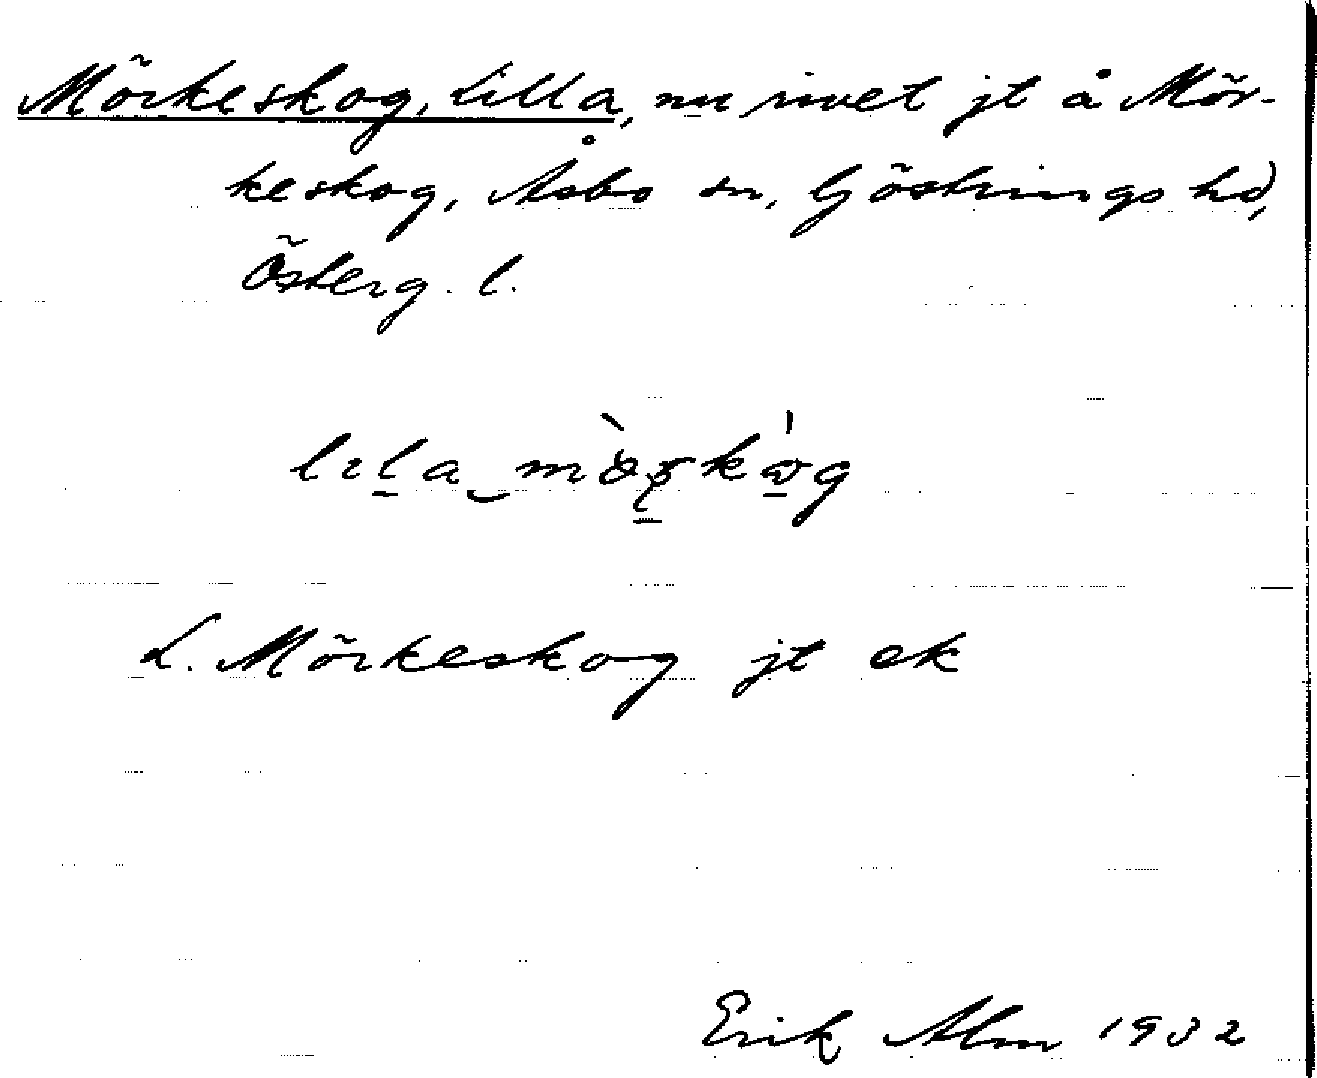 Mörkeskog, Lilla, nu rivet jt å Mör-
keskog, Åsbo sn, Göstrings hd,
Österg. l.
L. Mörkeskog jt ek
Erik Alm 1932